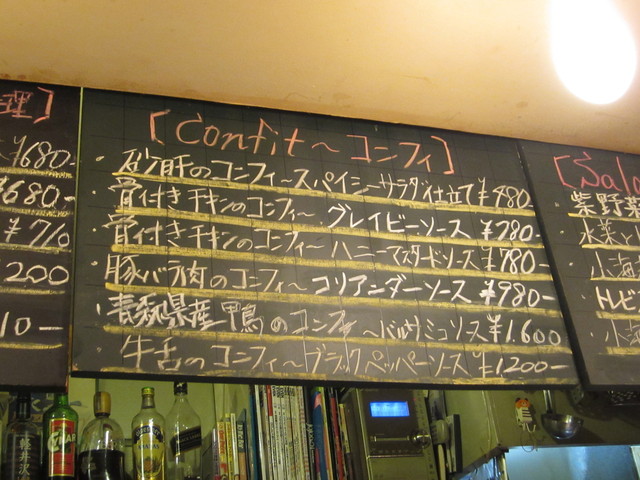 理]
¥680-
¥680-
¥710
200
10-
[Confit～コンフィ]
・砂肝のコンフィ～スパイシーサラダ仕立て¥480-
・骨付きチキンのコンフィ～グレイビーソース¥780-
・骨付きチキンのコンフィ～ハニーマスタードソース¥780-
・豚バラ肉のコンフィ～コリアンダーソース¥980-
・青森県産鴨のコンフィ～バルサミコソース¥1.600
・牛舌のコンフィ～ブラックペッパーソース¥1200-
[Sala
・紫野菜
・水菜と
・小海老
・トレビ
・小
軽井沢